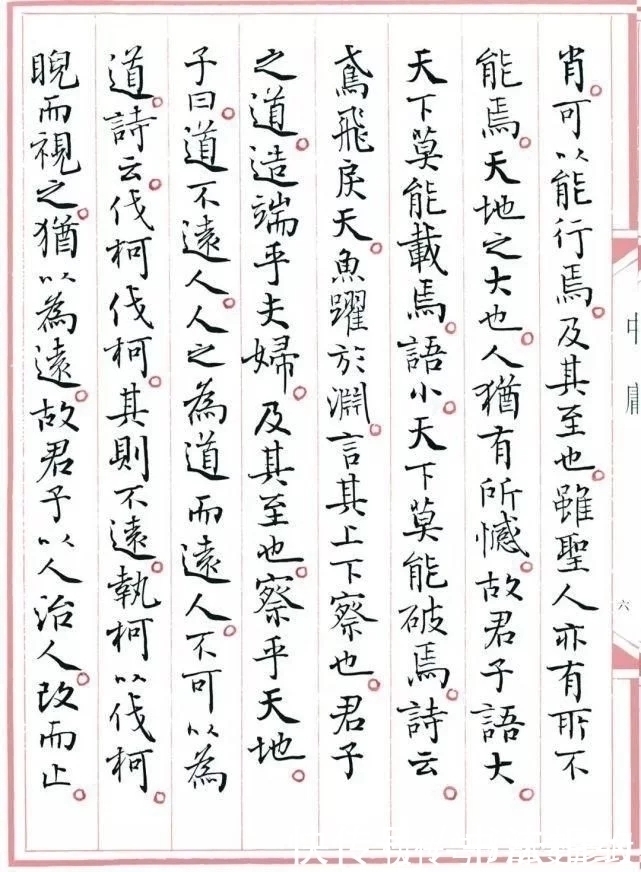 肖。可以能行焉。及其至也。雖聖人亦有所不
能焉。天地之大也。人猶有所憾。故君子語大。
天下莫能載焉。語小。天下莫能破焉。詩云。
鳶飛戾天。魚躍於淵。言其上下察也。君子
之道。造端乎夫婦。及其至也。察乎天地。
子曰。道不遠人。人之為道而遠人。不可以為
道。詩云。伐柯伐柯。其則不遠。執柯以伐柯。
睨而視之。猶以為遠。故君子以人治人。改而止。
中庸
六